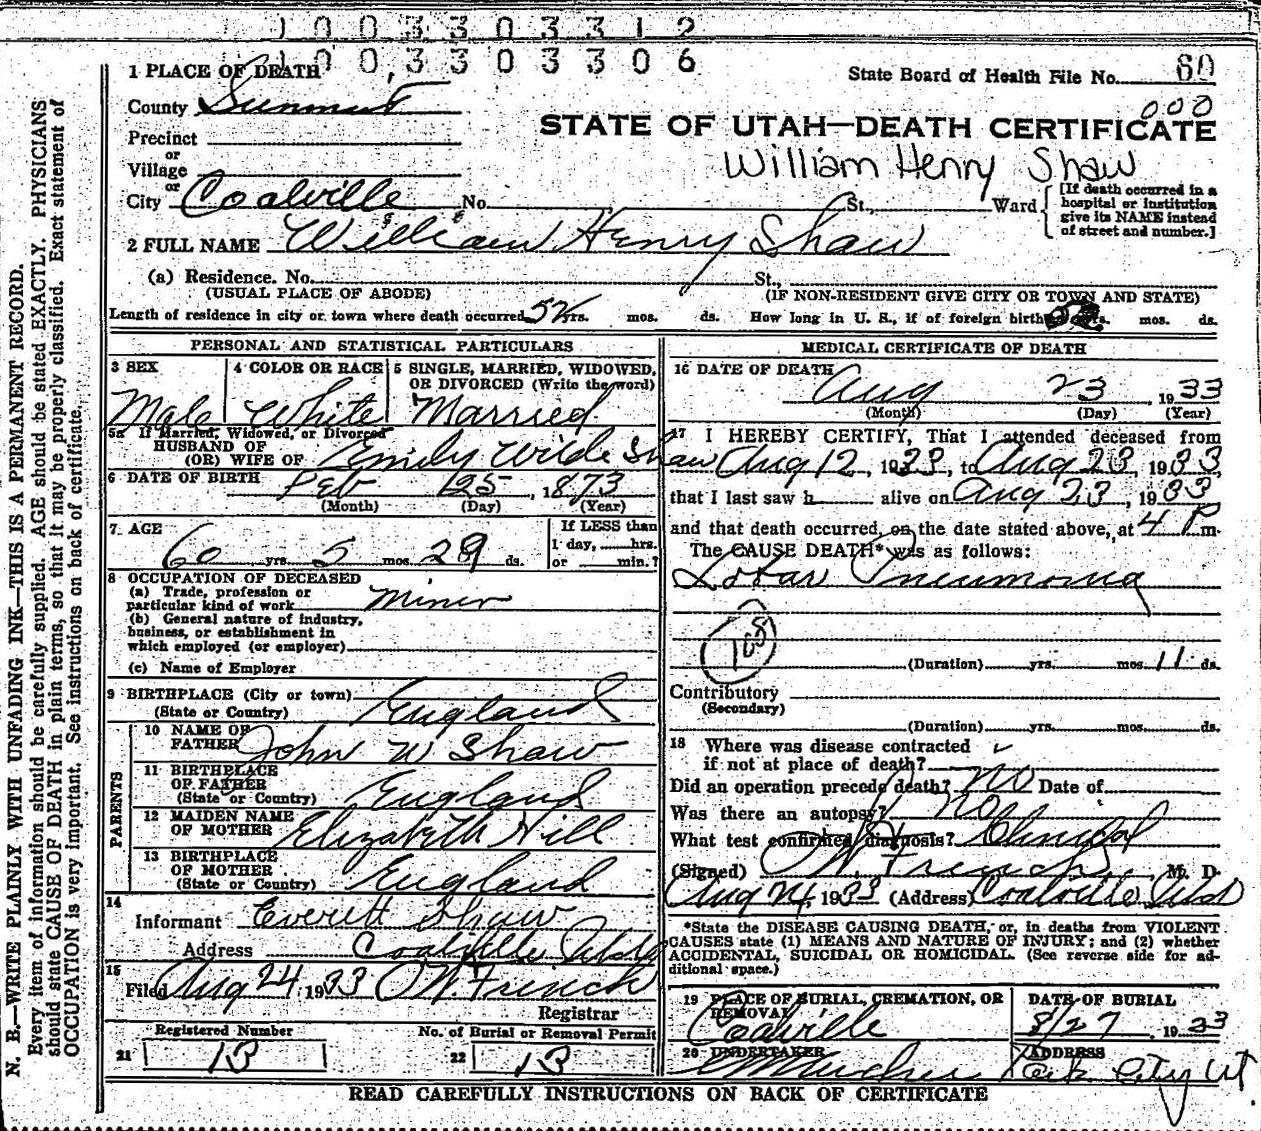 1003303312
1003303306
1 PLACE OF DEATH
State Board of Health File No. 60
County Summit
000
STATE OF UTAH—DEATH CERTIFICATE
Precinct
or
Village
William Henry Shaw
or
City Coalville No. St., Ward
[If death occurred in a
hospital or institution
give its NAME instead
of street and number.]
2 FULL NAME William Henry Shaw
(a) Residence. No. St.,
(USUAL PLACE OF ABODE) (IF NON-RESIDENT GIVE CITY OR TOWN AND STATE)
Length of residence in city or town where death occurred 52 yrs. mos. ds. How long in U. S., if of foreign birth 52 yrs. mos. ds.
PERSONAL AND STATISTICAL PARTICULARS
3 SEX
Male
4 COLOR OR RACE
White
5 SINGLE, MARRIED, WIDOWED,
OR DIVORCED (Write the word)
Married
5a If Married, Widowed, or Divorced
HUSBAND OF
(OR) WIFE OF Emily Wilde Shaw
6 DATE OF BIRTH Feb 25, 1873
(Month) (Day) (Year)
7 AGE
60 yrs. 5 mos. 29 ds.
If LESS than
1 day, hrs.
or min.?
8 OCCUPATION OF DECEASED
(a) Trade, profession or
particular kind of work Miner
(b) General nature of industry,
business, or establishment in
which employed (or employer)
(c) Name of Employer
9 BIRTHPLACE (City or town)
(State or Country) England
PARENTS
10 NAME OF
FATHER John W Shaw
11 BIRTHPLACE
OF FATHER
(State or Country) England
12 MAIDEN NAME
OF MOTHER Elizabeth Hill
13 BIRTHPLACE
OF MOTHER
(State or Country) England
14
Informant Everett Shaw
Address Coalville Utah
15
Filed Aug 24, 1933 O W. French
Registrar
Registered Number
21 13
No. of Burial or Removal Permit
22 13
MEDICAL CERTIFICATE OF DEATH
16 DATE OF DEATH
Aug 23, 1933
(Month) (Day) (Year)
17 I HEREBY CERTIFY, That I attended deceased from
Aug 12, 1933, to Aug 23, 1933,
that I last saw h alive on Aug 23, 1933
and that death occurred, on the date stated above, at 4 P m.
The CAUSE DEATH* was as follows:
Lobar Pneumonia
108
(Duration) yrs. mos. 11 ds.
Contributory
(Secondary)
(Duration) yrs. mos. ds.
18 Where was disease contracted
if not at place of death?
Did an operation precede death? No Date of
Was there an autopsy? No
What test confirmed diagnosis? Clinical
(Signed) O W. French, M. D.
Aug 24, 1933 (Address) Coalville Utah
*State the DISEASE CAUSING DEATH, or, in deaths from VIOLENT
CAUSES state (1) MEANS AND NATURE OF INJURY; and (2) whether
ACCIDENTAL, SUICIDAL OR HOMICIDAL. (See reverse side for ad-
ditional space.)
19 PLACE OF BURIAL, CREMATION, OR
REMOVAL
Coalville
DATE OF BURIAL
8/27, 1933
20 UNDERTAKER
ADDRESS
Park City Ut
READ CAREFULLY INSTRUCTIONS ON BACK OF CERTIFICATE
N. B.—WRITE PLAINLY WITH UNFADING INK—THIS IS A PERMANENT RECORD.
Every item of information should be carefully supplied. AGE should be stated EXACTLY. PHYSICIANS
should state CAUSE OF DEATH in plain terms, so that it may be properly classified. Exact statement of
OCCUPATION is very important. See instructions on back of certificate.